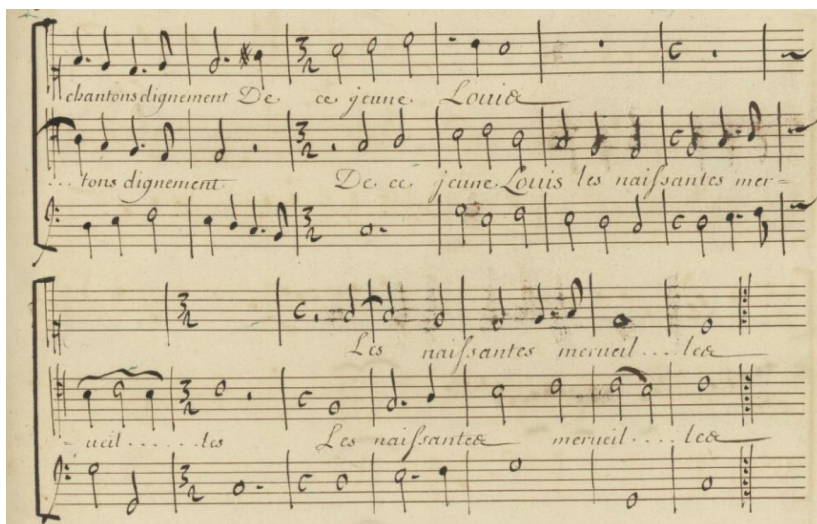 chantons dignement De ce jeune Louis
...tons dignement. De ce jeune Louis les naissantes mer=
Les naissantes merueil....les
-ueil......les Les naissantes merueil....les